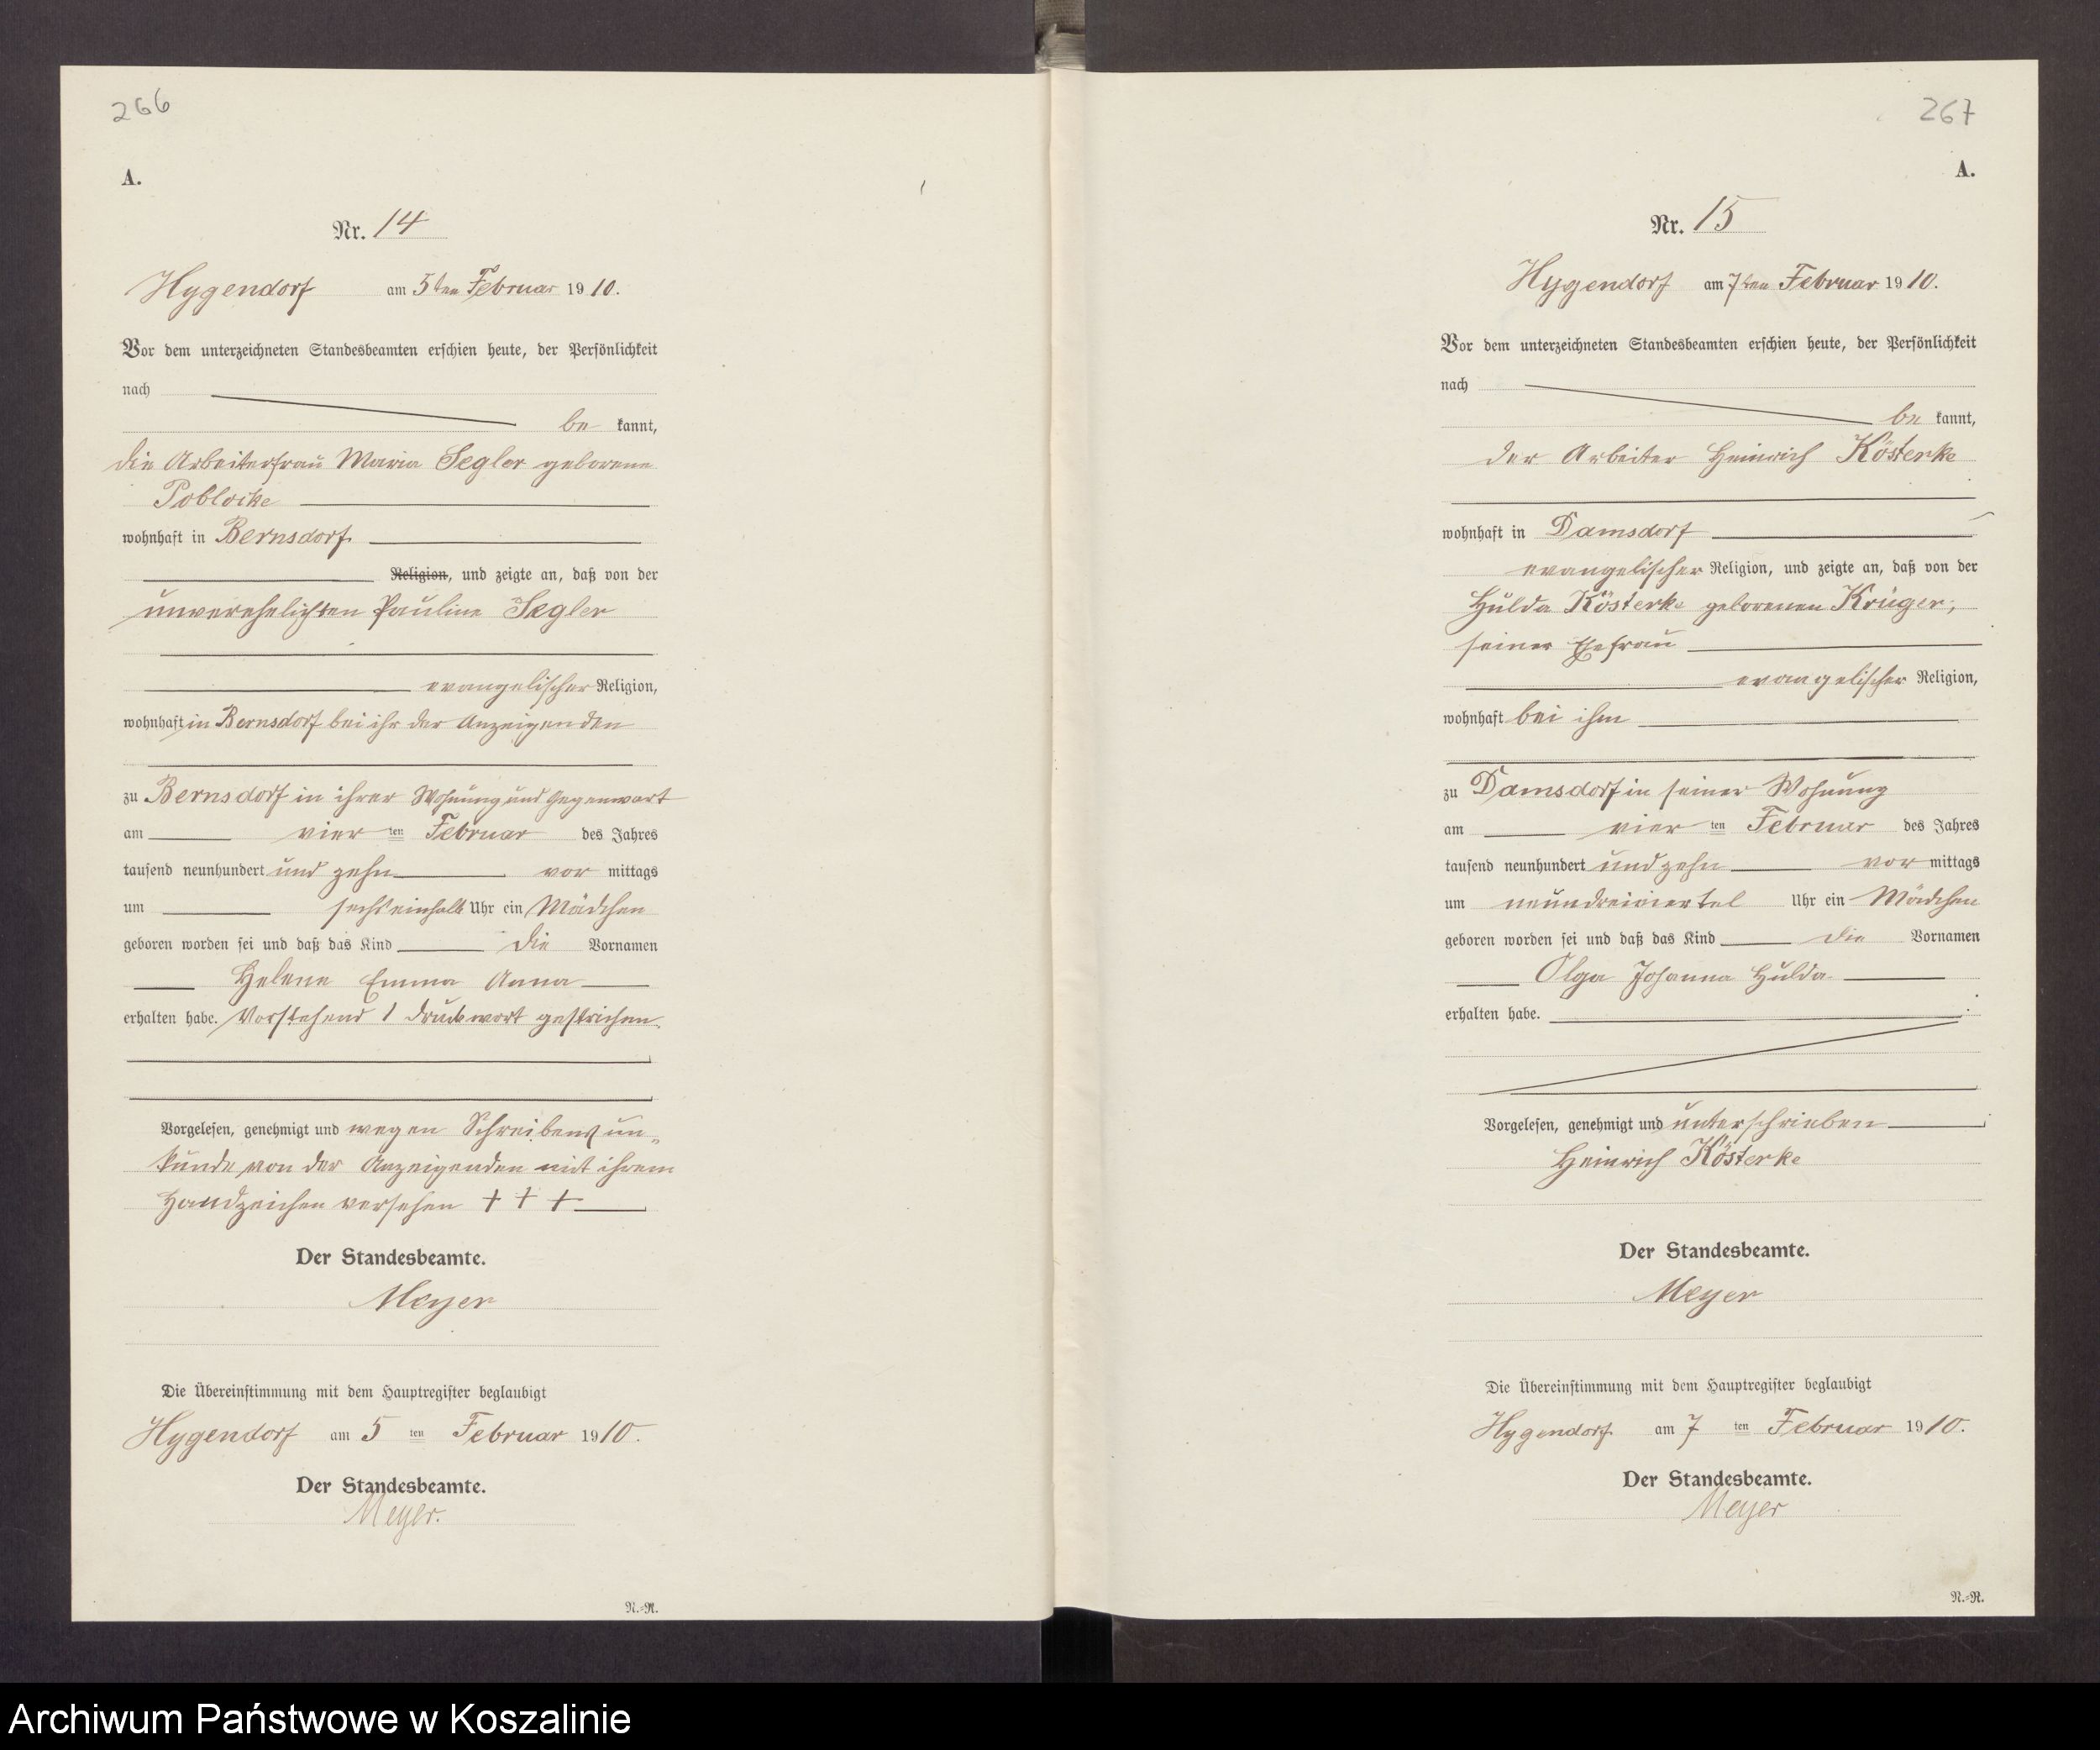 266
A.
Nr. 14
Hygendorf am 5ten Februar 1910.
Vor dem unterzeichneten Standesbeamten erschien heute, der Persönlichkeit
nach
be kannt,
die Arbeiterfrau Maria Segler geborene
Poblocke
wohnhaft in Bernsdorf
Religion, und zeigte an, daß von der
unverehelichten Pauline Segler
evangelischer Religion,
wohnhaft in Bernsdorf bei ihr der Anzeigenden
zu Bernsdorf in ihrer Wohnung und Gegenwart
am vier ten Februar des Jahres
tausend neunhundert und zehn vor mittags
um sechseinhalb Uhr ein Mädchen
geboren worden sei und daß das Kind die Vornamen
Helene Emma Anna
erhalten habe. Vorstehend 1 Druckwort gestrichen.
Vorgelesen, genehmigt und wegen Schreibens un„
kunde von der Anzeigenden mit ihrem
Handzeichen versehen + + +
Der Standesbeamte.
Meyer
Die Übereinstimmung mit dem Hauptregister beglaubigt
Hygendorf am 5 ten Februar 1910.
Der Standesbeamte.
Meyer.
N.=R.
267
A.
Nr. 15
Hygendorf am 7ten Februar 1910.
Vor dem unterzeichneten Standesbeamten erschien heute, der Persönlichkeit
nach
be kannt,
der Arbeiter Heinrich Kösterke
wohnhaft in Damsdorf
evangelischer Religion, und zeigte an, daß von der
Hulda Kösterke geborenen Krüger,
seiner Ehefrau
evangelischer Religion,
wohnhaft bei ihm
zu Damsdorf in seiner Wohnung
am vier ten Februar des Jahres
tausend neunhundert und zehn vor mittags
um neundreiviertel Uhr ein Mädchen
geboren worden sei und daß das Kind die Vornamen
Olga Johanna Hulda
erhalten habe.
Vorgelesen, genehmigt und unterschrieben
Heinrich Kösterke
Der Standesbeamte.
Meyer
Die Übereinstimmung mit dem Hauptregister beglaubigt
Hygendorf am 7 ten Februar 1910.
Der Standesbeamte.
Meyer
N.=R.
Archiwum Państwowe w Koszalinie